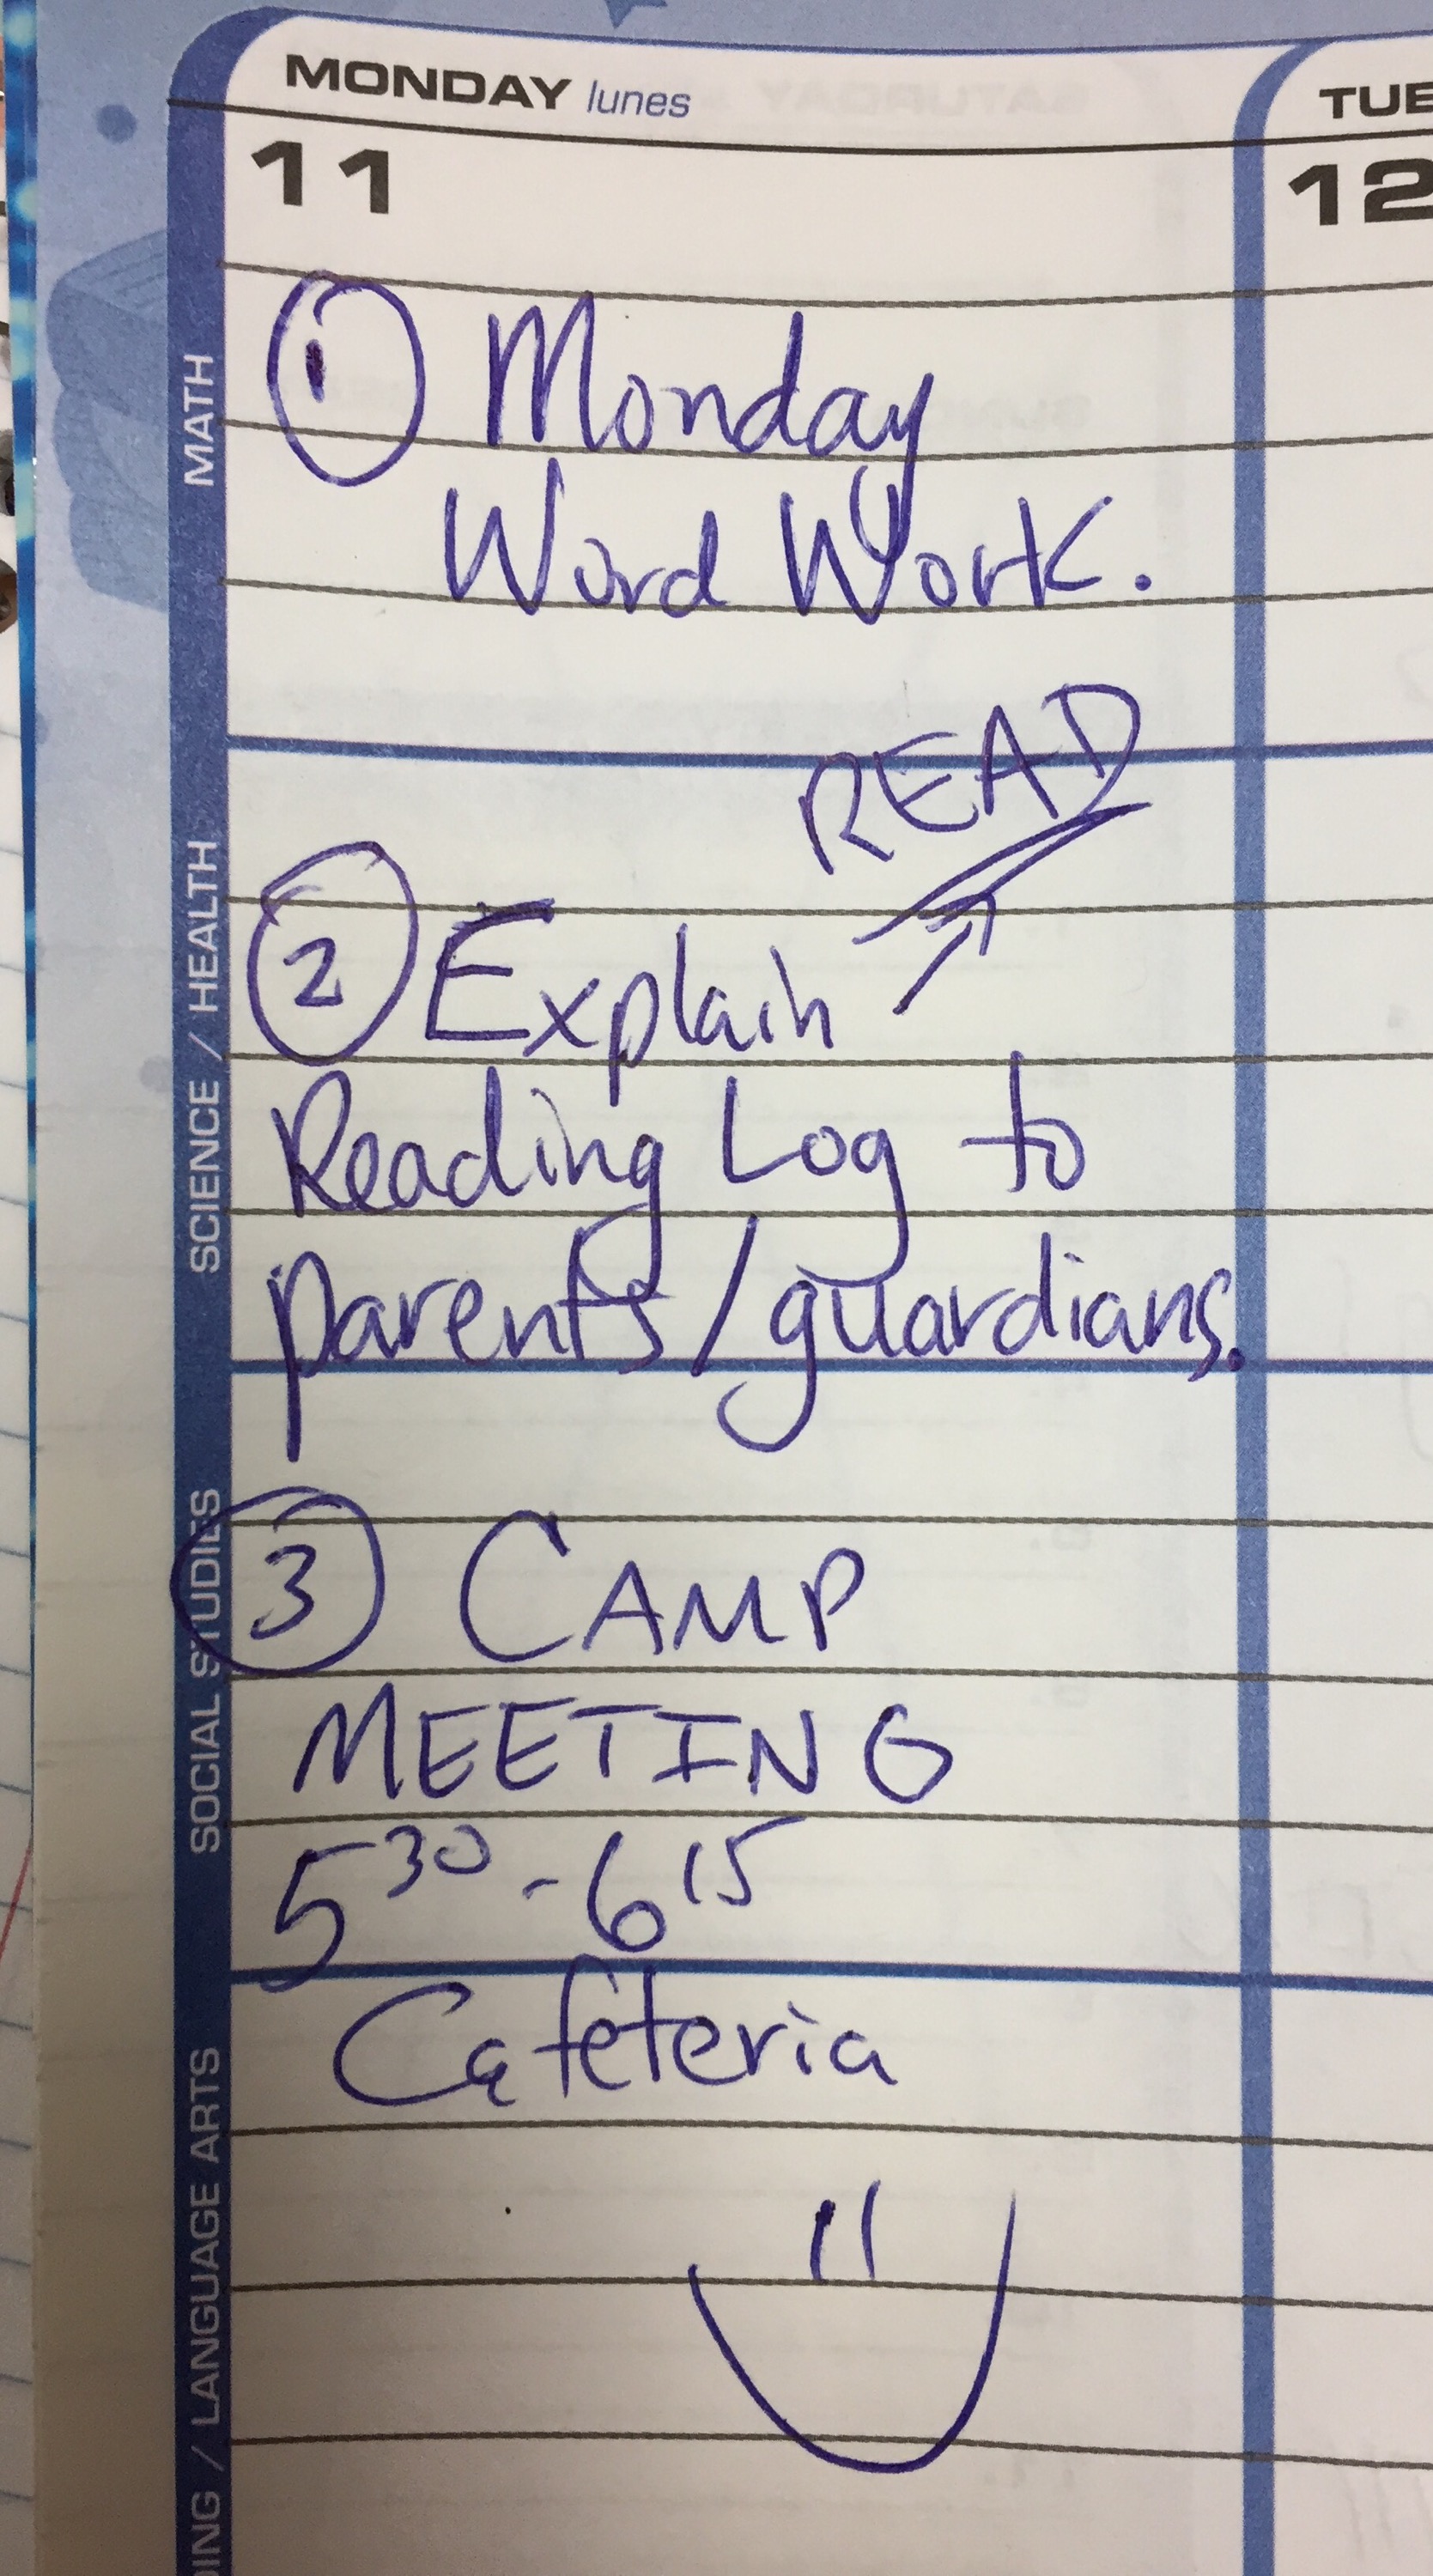 MONDAY lunes
TUE
11
12
MATH
① Monday
Word Work.
READ
SCIENCE / HEALTH
② Explain
Reading Log to
parents/guardians.
SOCIAL STUDIES
③ CAMP
MEETING
5³⁰ - 6¹⁵
Cafeteria
DING / LANGUAGE ARTS